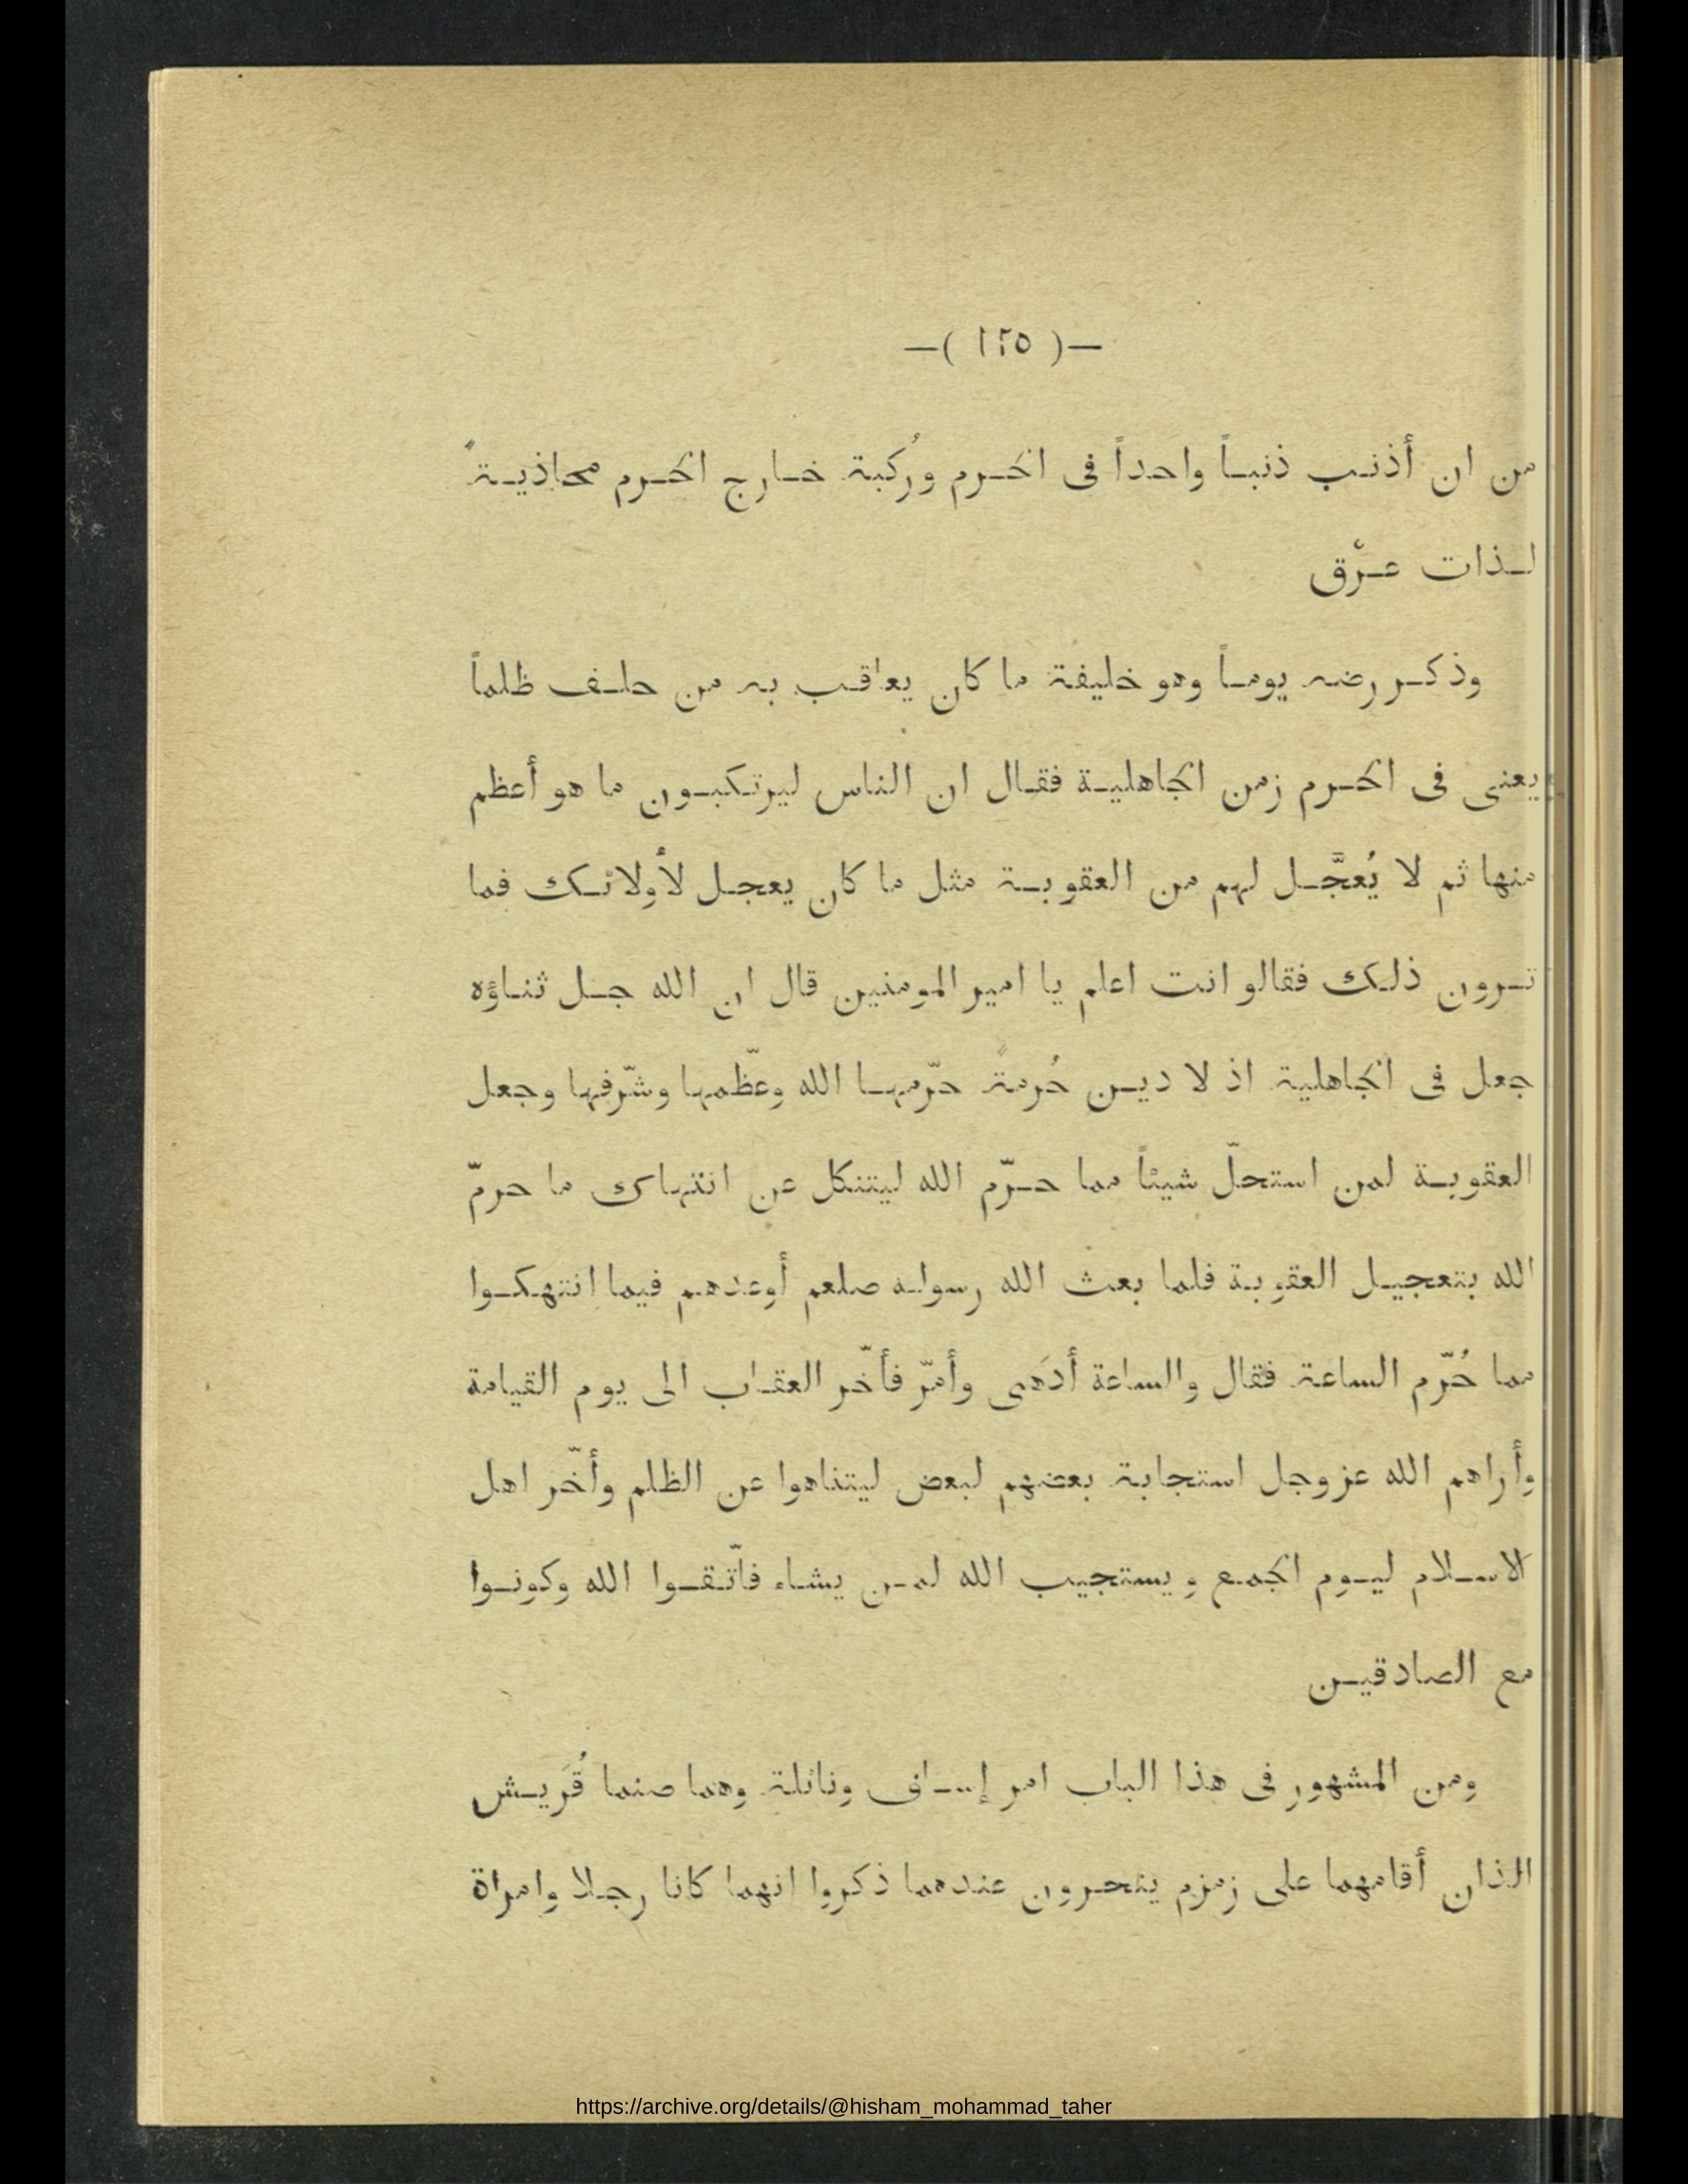 —( ١٢٥ )—
من ان أذنب ذنباً واحداً فى الحرم ورُكبة خارج الحرم محاذيةً
لذات عرْق
وذكر رضه يوماً وهو خليفة ما كان يعاقب به من حلف ظلماً
يعنى فى الحرم زمن الجاهلية فقال ان الناس ليرتكبون ما هو أعظم
منها ثم لا يُعجَّل لهم من العقوبة مثل ما كان يعجل لأولائك فما
ترون ذلك فقالو انت اعلم يا امير المومنين قال ان الله جل ثناؤه
جعل فى الجاهلية اذ لا دين حُرمةً حرّمها الله وعظّمها وشرّفها وجعل
العقوبة لمن استحلّ شيئاً مما حرّم الله ليتنكل عن انتهاك ما حرمّ
الله بتعجيل العقوبة فلما بعث الله رسوله صلعم أوعدهم فيما انتهكوا
مما حُرّم الساعة فقال والساعة أدَهى وأمرّ فأخّر العقاب الى يوم القيامة
وأراهم الله عز وجل استجابة بعضهم لبعض ليتناهوا عن الظلم وأخّر اهل
الاسلام ليوم الجمع ويستجيب الله لمن يشاء فاتّقوا الله وكونوا
مع الصادقين
ومن المشهور فى هذا الباب امر إساف ونائلة وهما صنما قُرَيش
الذان أقامهما على زمزم ينحرون عندهما ذكروا انهما كانا رجلا وامراة
https://archive.org/details/@hisham_mohammad_taher